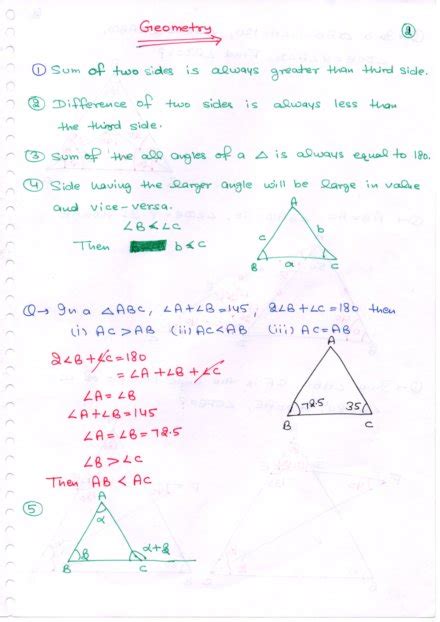 Geometry
1
① Sum of two sides is always greater than third side.
② Difference of two sides is always less than
the third side.
③ Sum of the all angles of a △ is always equal to 180.
④ Side having the larger angle will be large in value
and vice-versa.
∠B < ∠C
Then b < c
A
c b
B a C
Q → In a △ABC, ∠A+∠B=145, 2∠B+∠C=180 then
(i) AC>AB (ii) AC<AB (iii) AC=AB
2∠B+∠C=180
=∠A+∠B+∠C
∠A=∠B
∠A+∠B=145
∠A=∠B=72.5
∠B>∠C
Then AB < AC
A
72.5 35
B C
⑤
A
α
B C